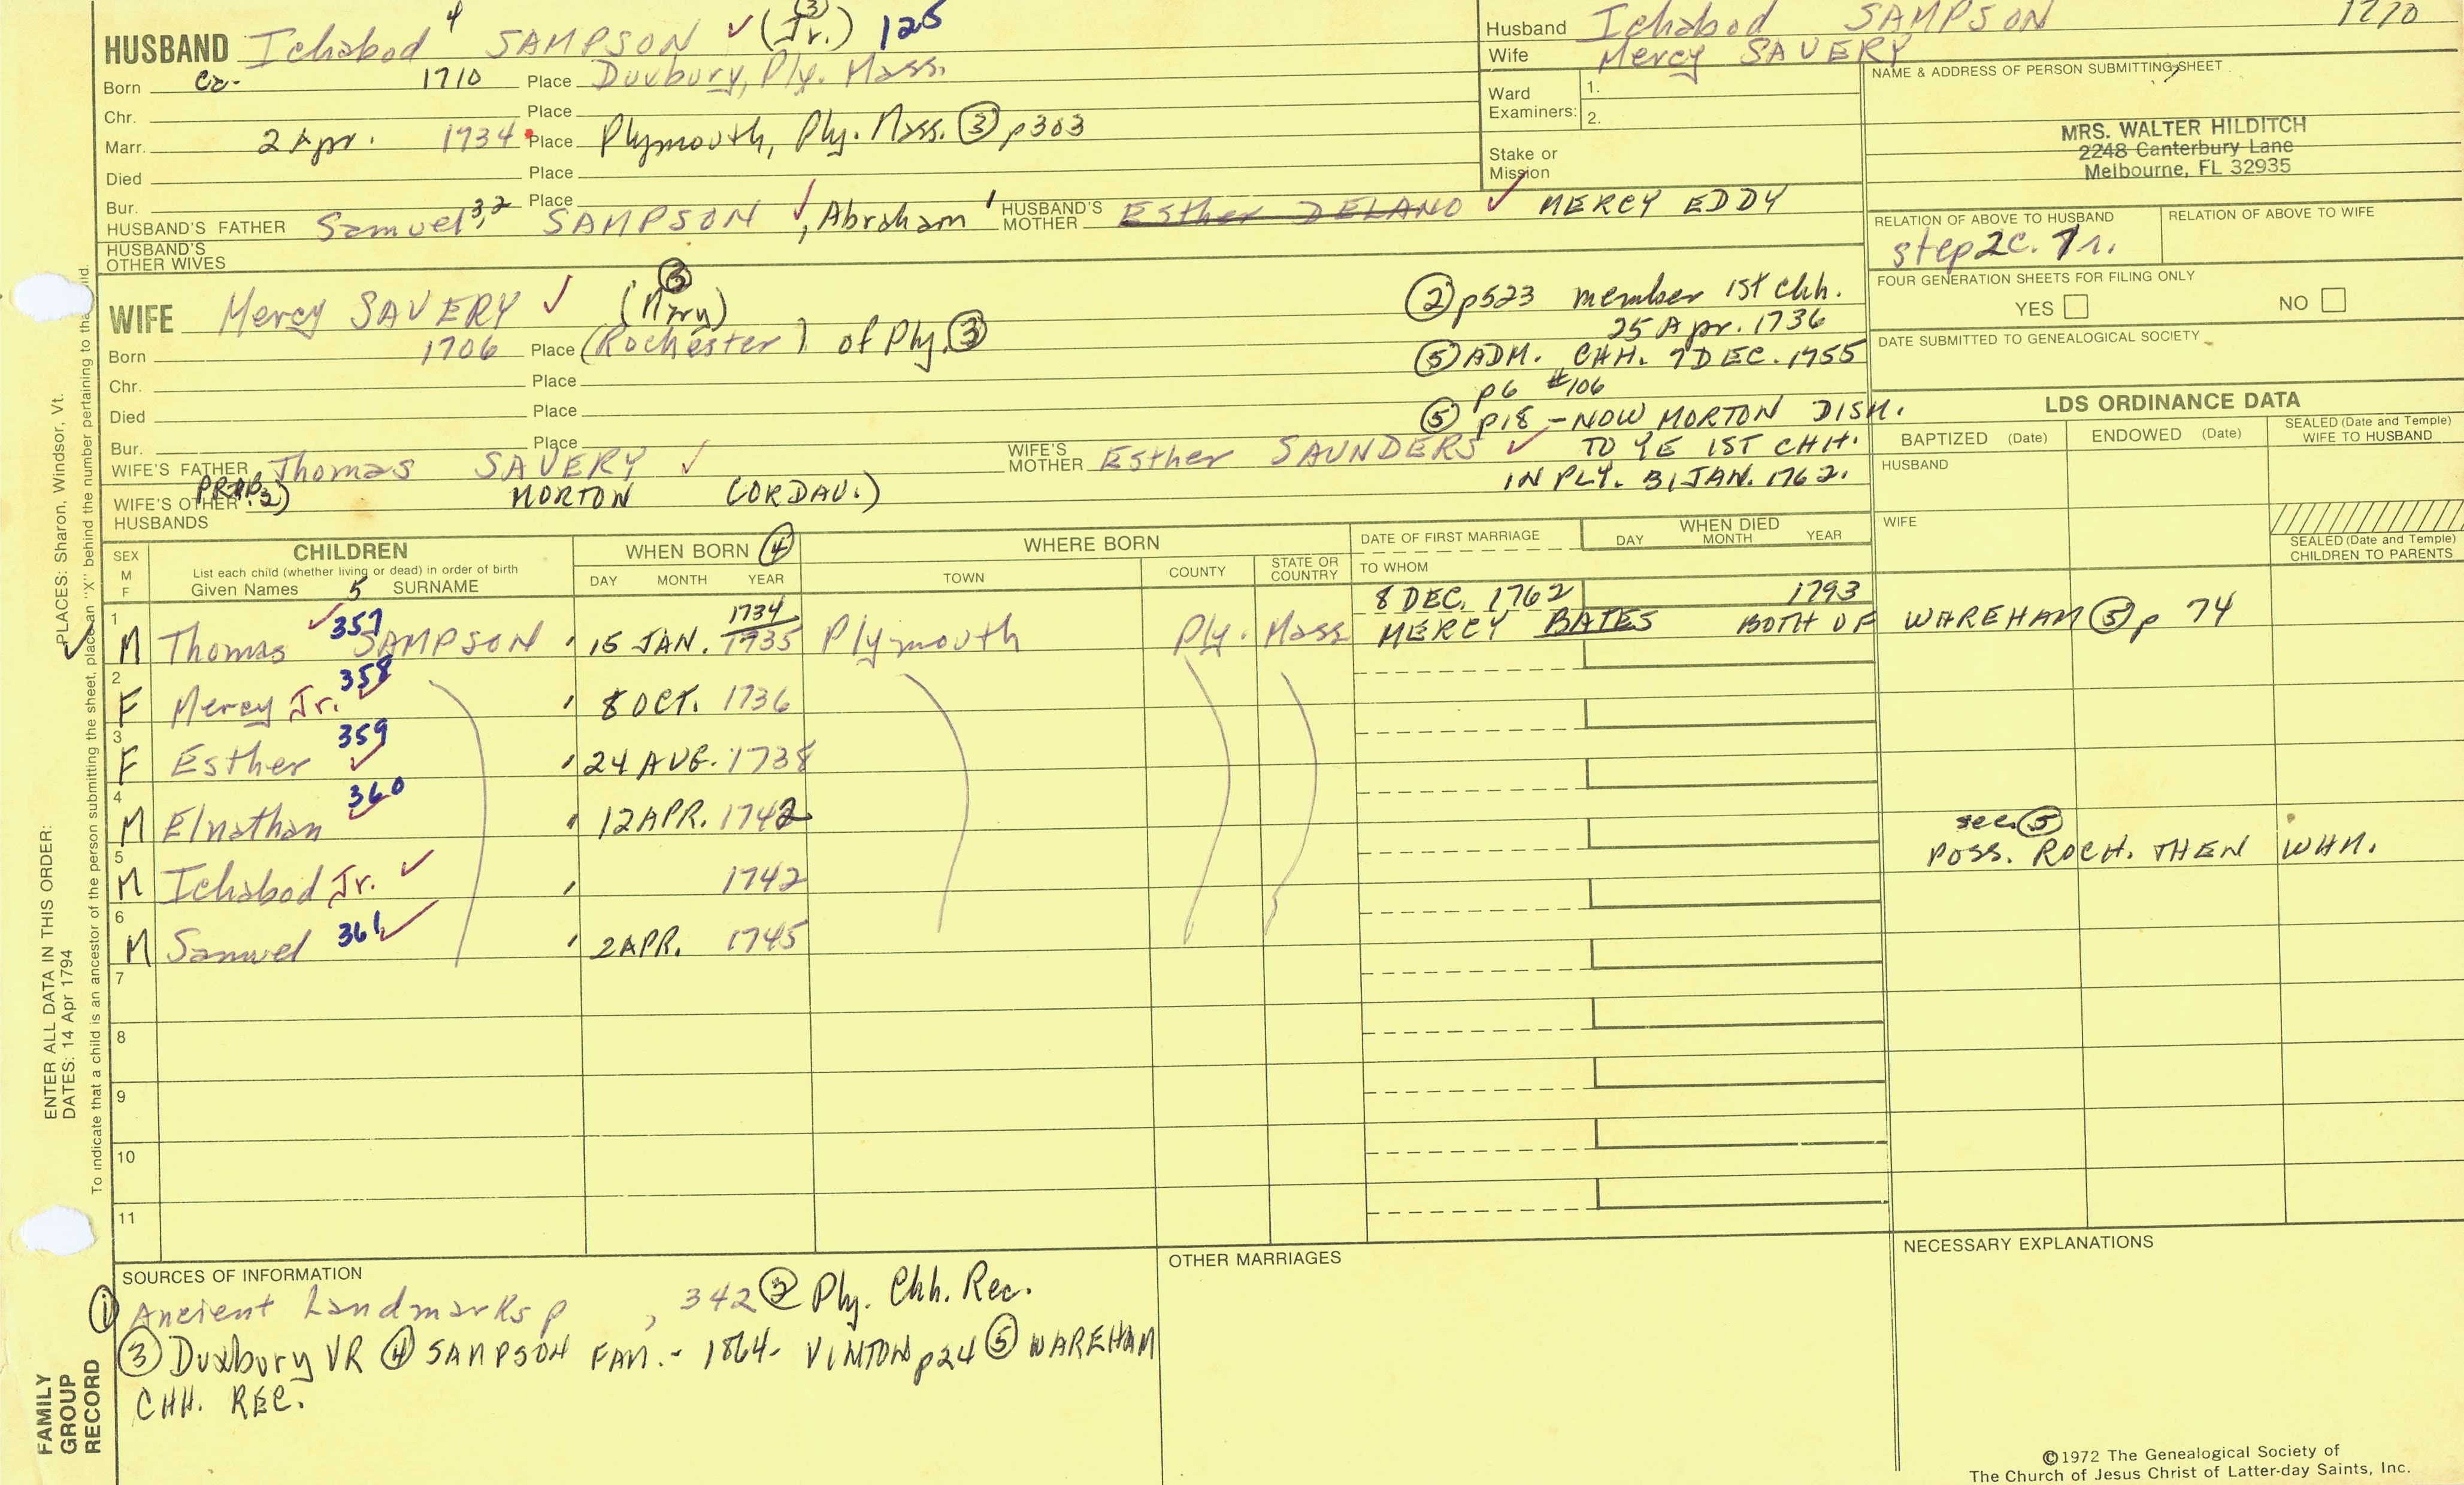 HUSBAND Ichabod 4 SAMPSON ✓ (Jr.) (3) 125
Born ca. 1710 Place Duxbury, Ply. Mass.
Chr. Place
Marr. 2 Apr. 1734 Place Plymouth, Ply. Mass. (3) p303
Died Place
Bur. Place
HUSBAND'S FATHER Samuel 3,2 SAMPSON ✓, Abraham 1 HUSBAND'S MOTHER Esther DELANO ✓ MERCY EDDY
HUSBAND'S OTHER WIVES
Husband Ichabod SAMPSON 1710
Wife Mercy SAVERY
Ward Examiners: 1.
2.
Stake or Mission
NAME & ADDRESS OF PERSON SUBMITTING SHEET
MRS. WALTER HILDITCH
2248 Canterbury Lane
Melbourne, FL 32935
RELATION OF ABOVE TO HUSBAND RELATION OF ABOVE TO WIFE
step 2c. 7r.
FOUR GENERATION SHEETS FOR FILING ONLY
YES NO
DATE SUBMITTED TO GENEALOGICAL SOCIETY
WIFE Mercy SAVERY ✓ (Mary) (3)
Born 1706 Place (Rochester) of Ply. (3)
Chr. Place
Died Place
Bur. Place
WIFE'S FATHER Thomas SAVERY ✓ WIFE'S MOTHER Esther SAUNDERS ✓
WIFE'S OTHER HUSBANDS PROB. 2) MORTON (OR DAU.)
(2) p523 member 1st chh.
25 Apr. 1736
(5) ADM. CHH. 7 DEC. 1755
p6 #106
(5) p18 - NOW MORTON DISM.
TO YE 1ST CHH.
IN PLY. 31 JAN. 1762.
LDS ORDINANCE DATA
BAPTIZED (Date) ENDOWED (Date) SEALED (Date and Temple) WIFE TO HUSBAND
HUSBAND
WIFE
SEALED (Date and Temple) CHILDREN TO PARENTS
SEX M F CHILDREN WHEN BORN (4) WHERE BORN DATE OF FIRST MARRIAGE WHEN DIED
List each child (whether living or dead) in order of birth
Given Names 5 SURNAME DAY MONTH YEAR TOWN COUNTY STATE OR COUNTRY TO WHOM DAY MONTH YEAR
8 DEC. 1762 1793
1 M Thomas ✓ 357 SAMPSON 15 JAN. 1734/1735 Plymouth Ply. Mass MERCY BATES BOTH OF WAREHAM (5) p 74
2 F Mercy Jr. 358 ✓ 8 OCT. 1736
3 F Esther 359 ✓ 24 AUG. 1738
4 M Elnathan 360 ✓ 12 APR. 1742
see (5)
POSS. ROCH. THEN WHM.
5 M Ichabod Jr. ✓ 1742
6 M Samuel 361 ✓ 2 APR. 1745
7
8
9
10
11
SOURCES OF INFORMATION
(1) Ancient Landmarks p , 342 (2) Ply. Chh. Rec.
(3) Duxbury VR (4) SAMPSON FAM. - 1864 - VINTON p24 (5) WAREHAM
CHH. REC.
OTHER MARRIAGES
NECESSARY EXPLANATIONS
©1972 The Genealogical Society of
The Church of Jesus Christ of Latter-day Saints, Inc.
ENTER ALL DATA IN THIS ORDER:
DATES: 14 Apr 1794
PLACES: Sharon, Windsor, Vt.
To indicate that a child is an ancestor of the person submitting the sheet, place an "X" behind the number pertaining to that child.
FAMILY
GROUP
RECORD